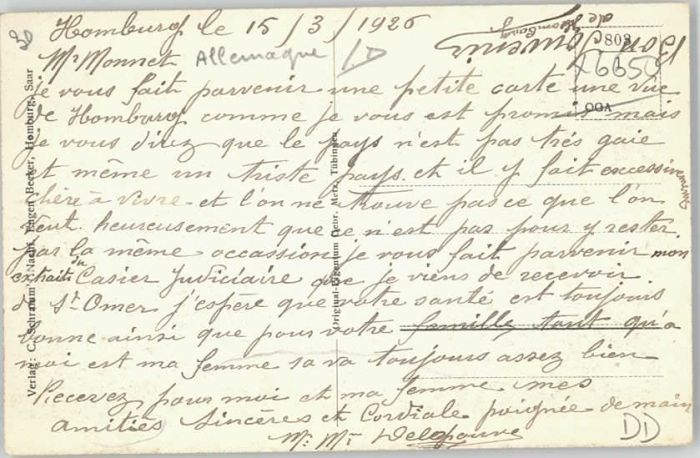 Homburg le 15/3/1926
Bon Souvenir
de Hombourg
808
X6650
Allemagne
I.D
Mr Monnet
Je vous fait parvenir une petite carte une vue
de Homburg comme je vous est promis mais
je vous direz que le pays n'est pas très gaie
et même un triste pays et il y fait excessivement
chère à vivre et l'on ne trouve pas ce que l'on
veut heureusement que ce n'est pas pour y rester
par la même occassion je vous fait parvenir mon
extrait du Casier Judiciaire que je viens de recevoir
de St Omer j'espère que votre santé est toujours
bonne ainsi que pour votre famille tant qu'a
moi est ma femme sa va toujours assez bien
Recevez pour moi et ma femme mes
amities Sincères et Cordiale poignée de main
Mr Mme
DD
Verlag: C. Schramm's Nachf. Eugen Becker, Homburg, Saar
Original-Eigentum Gebr. Metz, Tübingen